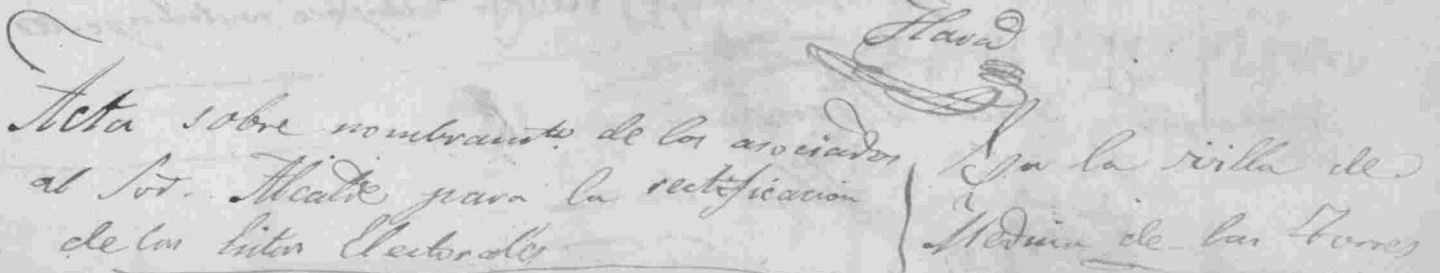 Acta sobre nombramto. de los asociados
al Sor. Alcalde para la rectificacion
de las listas Electorales
En la villa de
Medina de las Torres